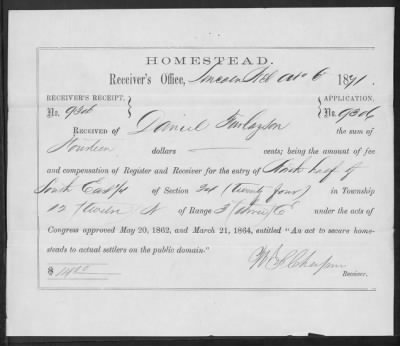 HOMESTEAD.
Receiver's Office, Lincoln Neb 6 1871.
RECEIVER'S RECEIPT, APPLICATION,
No. 9306 No. 9306
RECEIVED OF Daniel Finlayson the sum of
Fourteen dollars — cents; being the amount of fee
and compensation of Register and Receiver for the entry of North half of
South East ¼ of Section 24 (twenty four) in Township
12 (twelve) N of Range 3 (three) E under the acts of
Congress approved May 20, 1862, and March 21, 1864, entitled "An act to secure home-
steads to actual settlers on the public domain."
$ 14.00
Receiver.